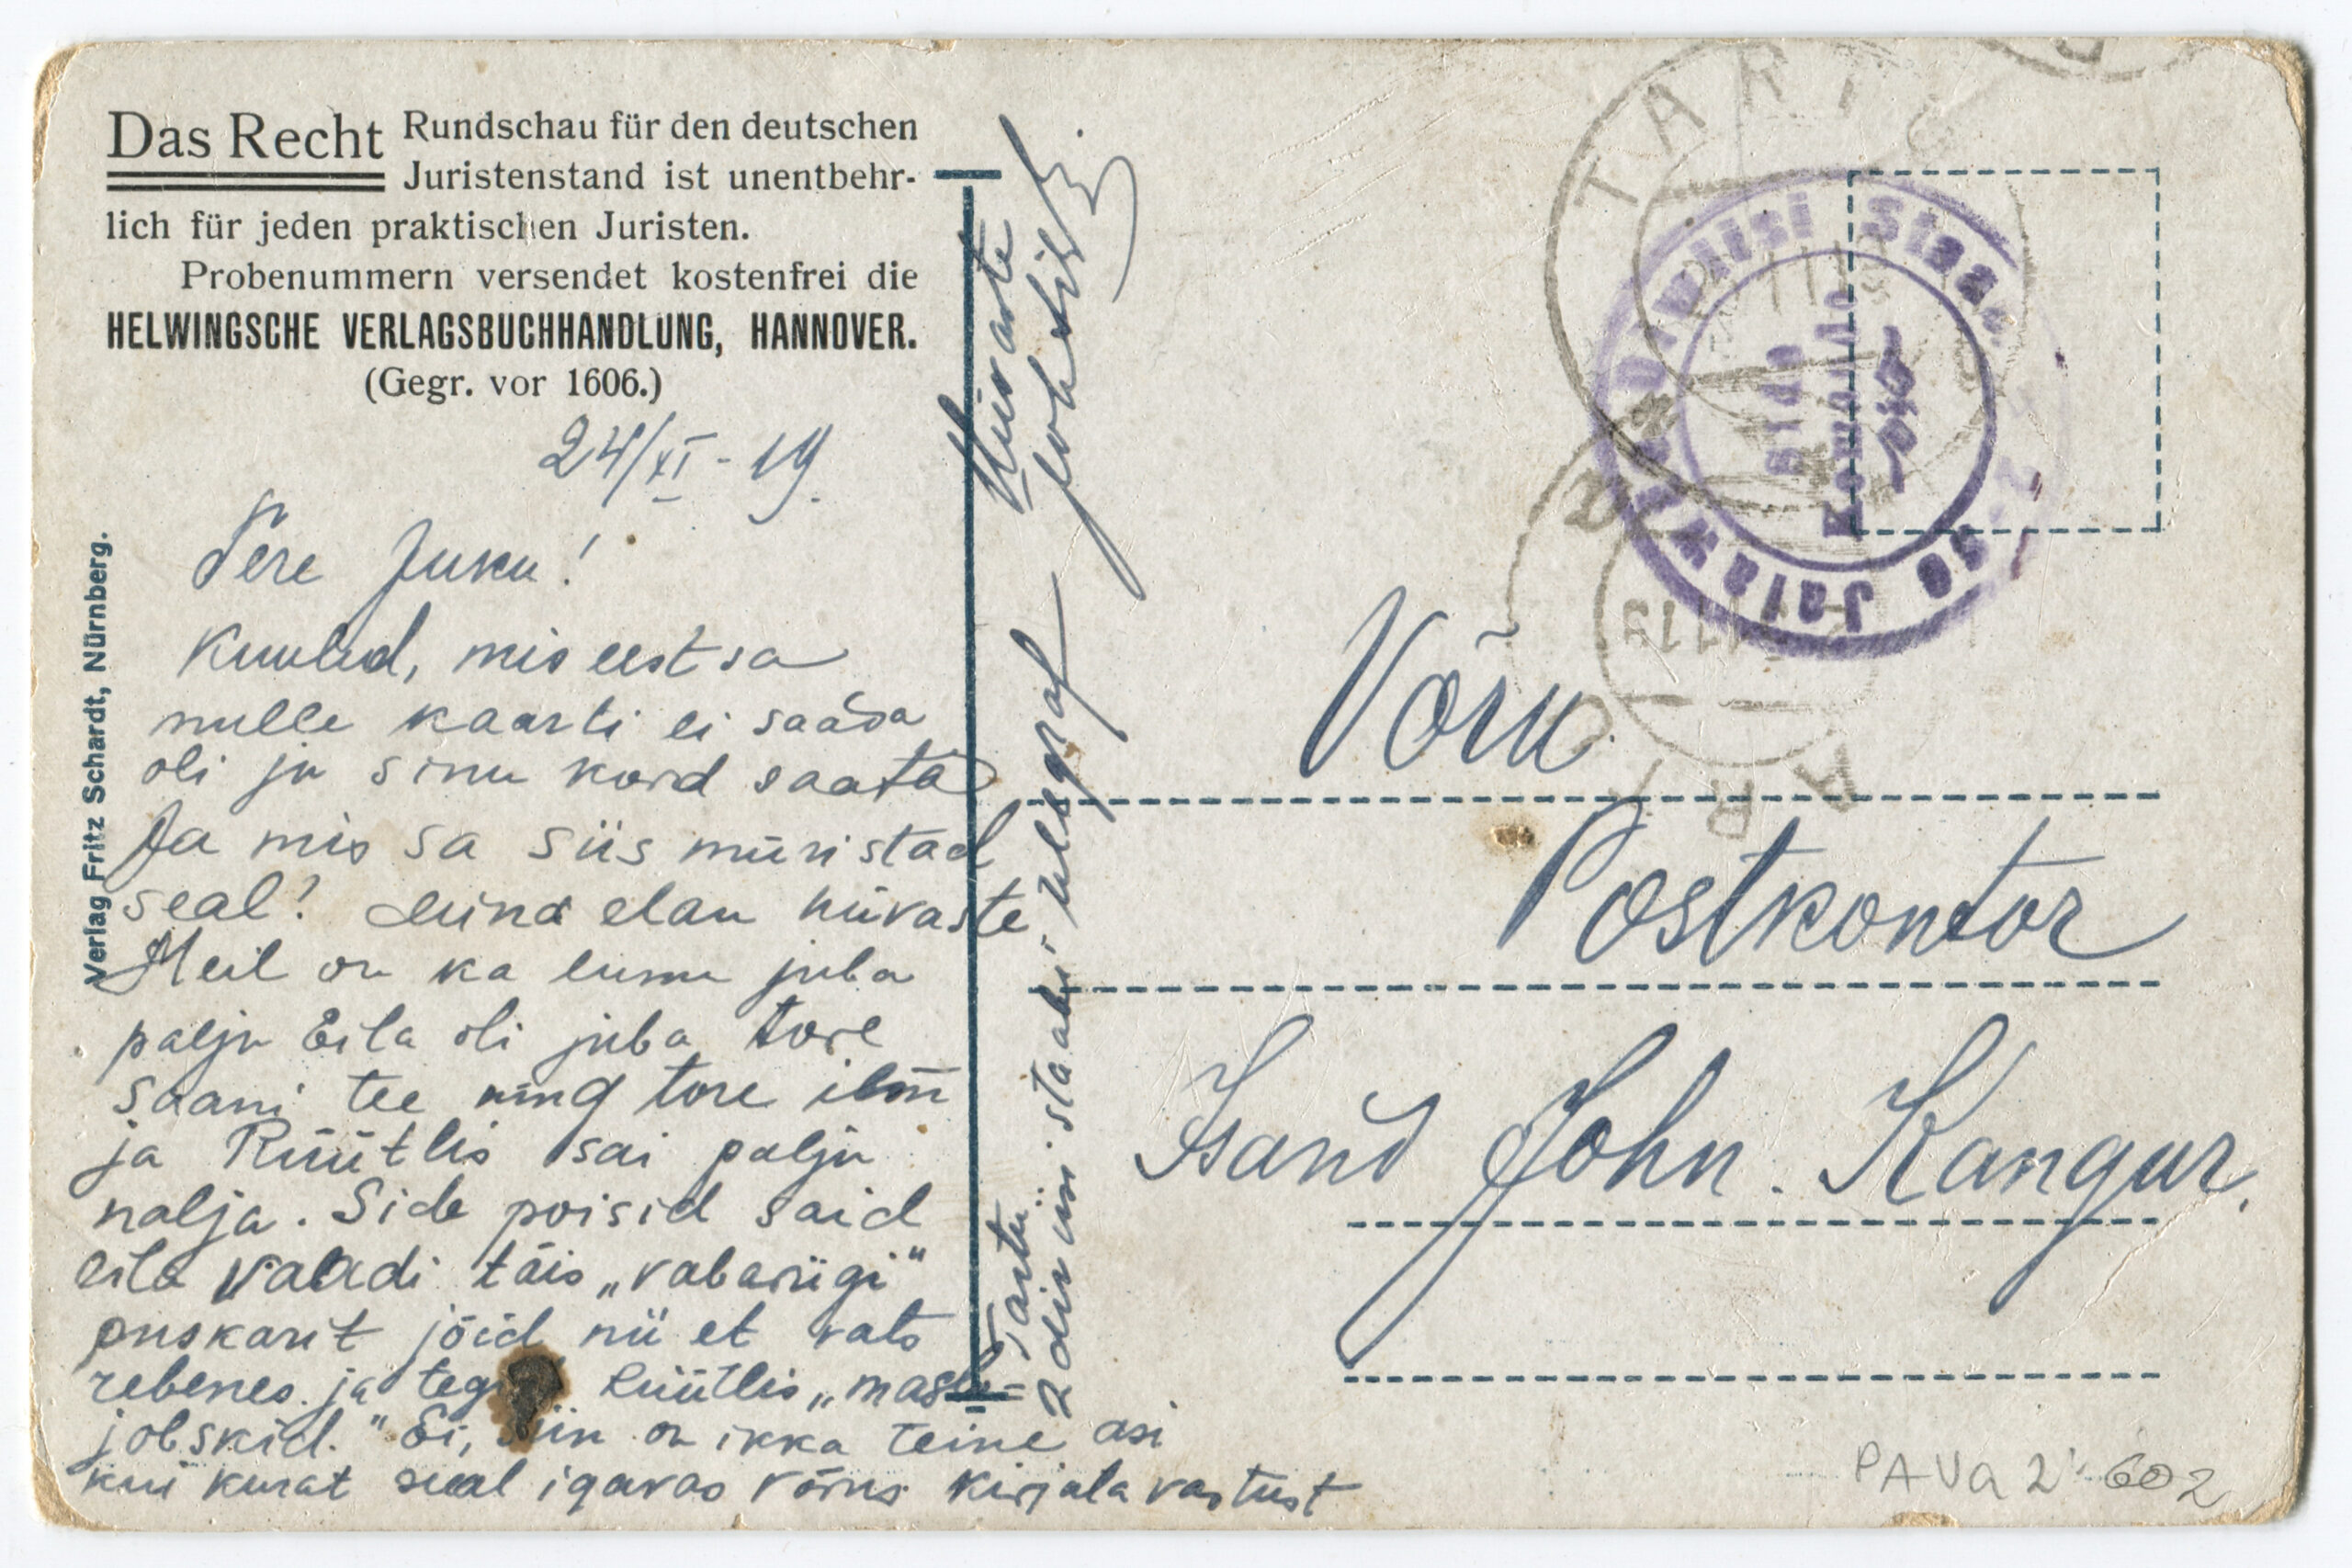 Das Recht Rundschau für den deutschen
Juristenstand ist unentbehr-
lich für jeden praktischen Juristen.
Probenummern versendet kostenfrei die
HELWINGSCHE VERLAGSBUCHHANDLUNG, HANNOVER.
(Gegr. vor 1606.)
Verlag Fritz Schardt, Nürnberg.
24/XI - 19.
Tere Juku!
Kuuled, mis eest sa
mulle kaarti ei saada
oli ju sinu kord saata
Ja mis sa siis müristad
seal! Mina elan hüvaste
Meil on ka lumu juba
palju Eila oli juba tore
saani tee ning tore ilm
ja Rüütlis sai palju
nalja. Side poisid said
eila vaadi täis „vabariigi"
puskarit jõid nii et vats
rebenes ja Rüütlis „mas
jobskid." Ei, siin on ikka teine asi
kui kurat seal igavas võrus kirjuta vastust
Tartu
2 diviisi staabi telegraf
Hüvaste
TARTU
Diwiisi Staa
Side
Komando
Jalaw
TARTU
1119
Võru
Postkontor
Isand John. Kangur.
PAVa 2: 602